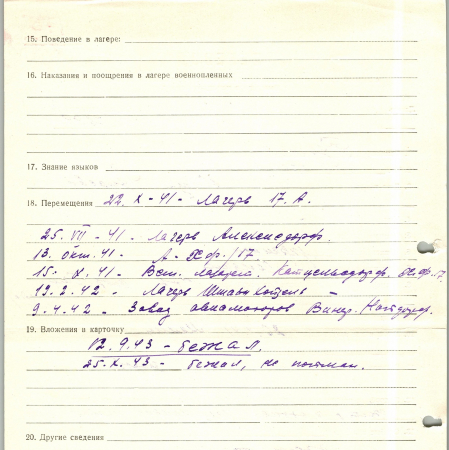 15. Поведение в лагере:
16. Наказания и поощрения в лагере военнопленных
17. Знание языков
18. Перемещения 22. X - 41 - Лагерь 17. А.
25. VII - 41 - Лагерь Александорф.
13. Окт. 41 - А -
15. X. 41 -
19. 2. 42 - Лагерь
9. 4. 42 - Завод авиамоторов Винер.
19. Вложения в карточку
12. 9. 43 - бежал.
25. X. 43 - бежал, не пойман.
20. Другие сведения